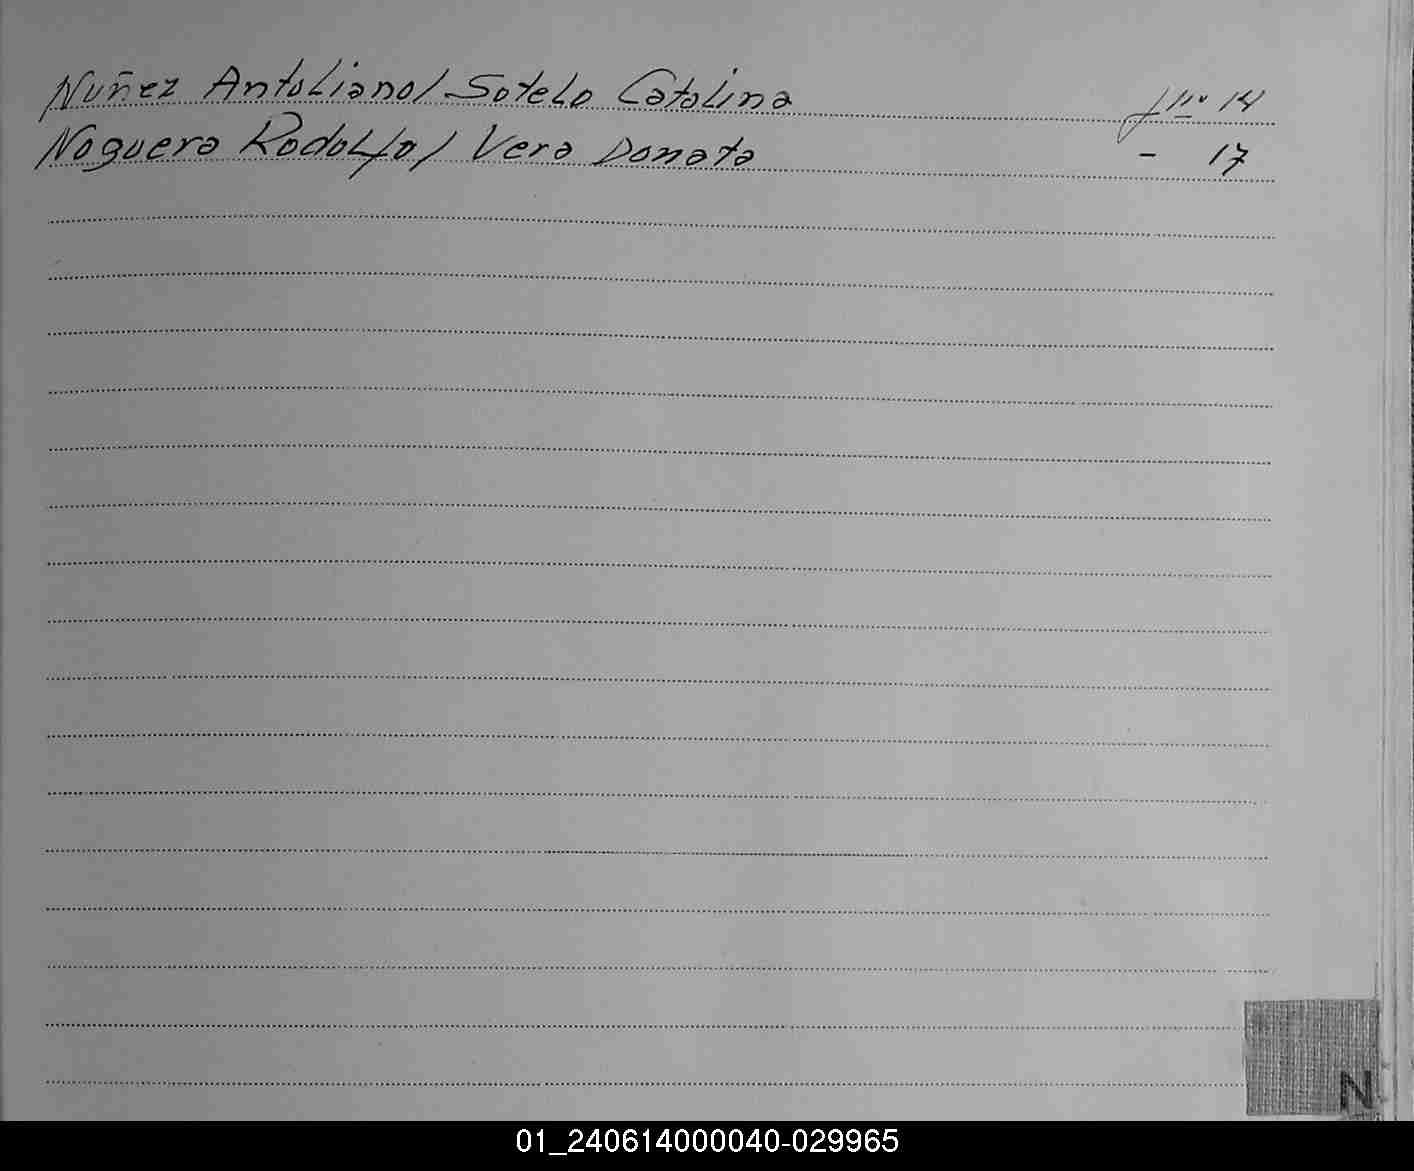 Nuñez Antoliano / Sotelo Catalina fno 14
Noguera Rodolfo / Vera Donata - 17
N
01_240614000040-029965